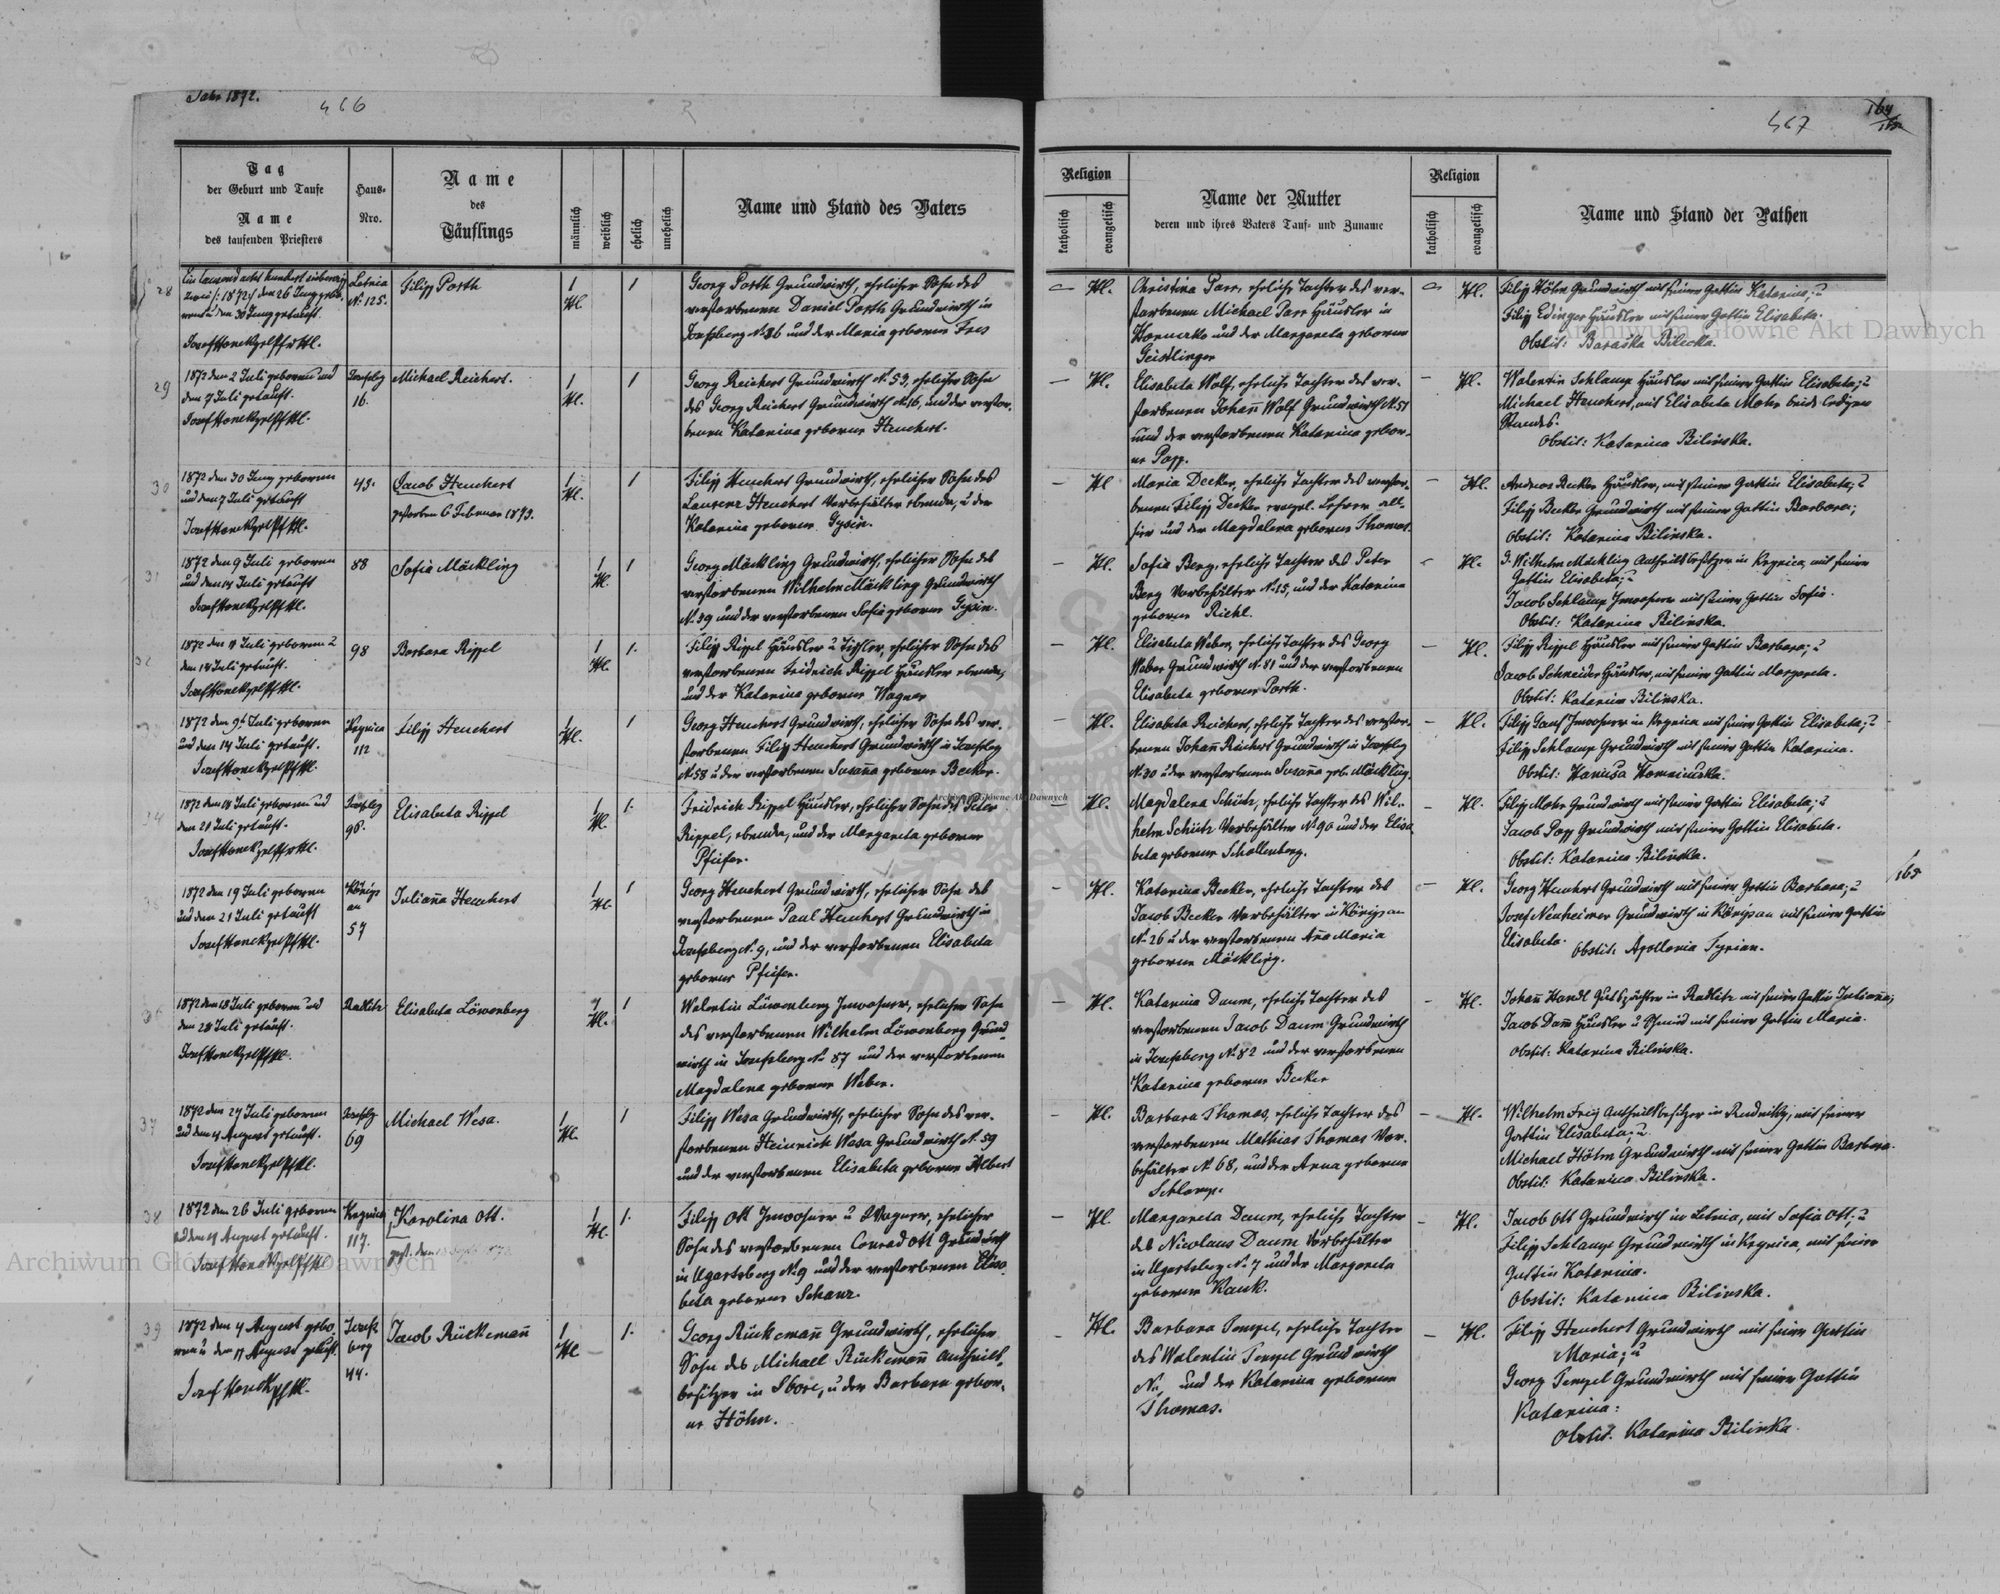 Jahr 1872.
466
467
164
165
Tag
der Geburt und Taufe
Name
des taufenden Priesters
Haus-
Nro.
Name
des
Täuflings
männlich
weiblich
ehelich
unehelich
Name und Stand des Vaters
Religion
katholisch
evangelisch
Name der Mutter
deren und ihres Vaters Tauf- und Zuname
Religion
katholisch
evangelisch
Name und Stand der Pathen
28
Ein tausend acht hundert siebenzig
zwei /: 1872 :/ den 26 Juny gebo-
ren u den 30 Juny getauft.
Letnia
No 125.
Filipp Porth
1
Hl.
1
Georg Porth Grundwirth, ehelicher Sohn des
verstorbenen Daniel Porth Grundwirth in
Josefsberg No 26 und der Maria geborne Fres
Hl.
Christina Parr, ehelich Tochter des ver-
storbenen Michael Parr Häusler in
und der Margareta geborene
Geistlinger
Hl.
Filipp Höhn Grundwirth mit seiner Gattin Katarina; u
Filipp Edinger Häusler mit seiner Gattin Elisabeta.
Obstit: Baraska Bilecka.
29
1872 den 2 Juli geboren und
den 7 Juli getauft.
Josefbg
16.
Michael Reichert.
1
Hl.
1
Georg Reichert Grundwirth No 53, ehelicher Sohn
des Georg Reichert Grundwirth No 16, und der verstor-
benen Katarina geborne Heuchert.
Hl.
Elisabeta Wolf, eheliche Tochter des ver-
storbenen Johann Wolf Grundwirth No 51
und der verstorbenen Katarina gebor-
ne Popp.
Hl.
Walentin Schlamp Häusler mit seiner Gattin Elisabeta; u
Michael Heuchert, mit Elisabeta Mohr beide ledigen
Standes.
Obstit: Katarina Bilinska.
30
1872 den 30 Juny geboren
und den 7 Juli getauft
43.
Jacob Heuchert
gestorben 6 Februar 1873.
1
Hl.
1
Filipp Heuchert Grundwirth, ehelicher Sohn des
Laurenz Heuchert Vorbehälter ebenda, u der
Katarina geborne Gysin.
Hl
Maria Decker, eheliche Tochter des verstor-
benen Filipp Decker evangel. Lehrer all-
hier und der Magdalena geborne Thomas.
Hl.
Andreas Becker Häusler, mit seiner Gattin Elisabeta; u
Filipp Becker Grundwirth mit seiner Gattin Barbara;
Obstit: Katarina Bilinska.
31
1872 den 9 Juli geboren
und den 14 Juli getauft
88
Sofia Möckling
1
Hl.
1
Georg Möckling Grundwirth, ehelicher Sohn des
verstorbenen Wilhelm Möckling Grundwirth
No 39 und der verstorbenen Sofia geborne Gysin.
Hl.
Sofia Berg, eheliche Tochter des Peter
Berg Vorbehälter No 15, und der Katarina
geborne Richl.
Hl.
Wilhelm Möckling Antheilsbesitzer in Kegnica, mit seiner
Gattin Elisabeta; u
Jacob Schlamp Inwohner mit seiner Gattin Sofia.
Obstit: Katarina Bilinska.
32
1872 den 11 Juli geboren u
den 14 Juli getauft.
98
Barbara Rippel
1
Hl.
1.
Filipp Rippel Häusler u Tischler, ehelicher Sohn des
verstorbenen Fridrich Rippel Häusler ebenda,
und der Katarina geborne Wagner
Hl.
Elisabeta Weber, eheliche Tochter des Georg
Weber Grundwirth No 81 und der verstorbenen
Elisabeta geborne Porth.
Hl.
Filipp Rippel Häusler mit seiner Gattin Barbara; u
Jacob Schneider Häusler, mit seiner Gattin Margareta.
Obstit: Katarina Bilinska.
33
1872 den 9t Juli geboren
und den 14 Juli getauft.
Kegnica
112
Filipp Heuchert
1
Hl.
1
Georg Heuchert Grundwirth, ehelicher Sohn des ver-
storbenen Filipp Heuchert Grundwirth in Josefbg
No 58 u der verstorbenen Susanna geborne Becker.
Hl.
Elisabeta Reichert, eheliche Tochter des verstor-
benen Johann Reichert Grundwirth in Josefbg
No 30 u der verstorbenen Susanna geb: Möckling.
Hl.
Filipp Inwohner in Kegnica mit seiner Gattin Elisabeta; u
Filipp Schlamp Grundwirth mit seiner Gattin Katarina.
34
1872 den 14 Juli geboren und
den 21 Juli getauft.
Josefbg
96.
Elisabeta Rippel
1
Hl.
1.
Fridrich Rippel Häusler, ehelicher Sohn des Peter
Rippel, ebenda, und der Margareta geborne
Pfeifer.
Hl.
Magdalena Schütz, eheliche Tochter des Wil-
helm Schütz Vorbehälter No 90 und der Elisa
beta geborne Schallenberg.
Hl.
Filipp Mohr Grundwirth mit seiner Gattin Elisabeta; u
Jacob Popp Grundwirth mit seiner Gattin Elisabeta.
Obstit: Katarina Bilinska.
165
35
1872 den 19 Juli geboren
und den 21 Juli getauft
Königs
au
57
Julianna Heuchert
1
Hl.
1
Georg Heuchert Grundwirth, ehelicher Sohn des
verstorbenen Paul Heuchert Grundwirth in
Josefsberg No 9, und der verstorbenen Elisabeta
geborne Pfeifer.
Hl.
Katarina Becker, eheliche Tochter des
Jacob Becker Vorbehälter in Königsau
No 26 u der verstorbenen Anna Maria
geborne Möckling.
Hl.
Georg Heuchert Grundwirth mit seiner Gattin Barbara; u
Josef Neuheimer Grundwirth in Königsau mit seiner Gattin
Elisabeta. Obstit: Apollonia Tyrian.
36
1872 den 18 Juli geboren und
den 28 Juli getauft.
Radlitz
Elisabeta Löwenberg
1
Hl.
1
Walentin Löwenberg Inwohner, ehelicher Sohn
des verstorbenen Wilhelm Löwenberg Grund-
wirth in Josefsberg No 87 und der verstorbenen
Magdalena geborne Weber.
Hl.
Katarina Daum, eheliche Tochter des
verstorbenen Jacob Daum Grundwirth
in Josefsberg No 82 und der verstorbenen
Katarina geborne Becker
Hl.
Johann Handl Gutspächter in Radlitz mit seiner Gattin Julianna;
Jacob Damm Häusler u Schmid mit seiner Gattin Maria.
Obstit: Katarina Bilinska.
37
1872 den 27 Juli geboren
und den 4 August getauft.
Josefbg
69
Michael Wesa.
1
Hl.
1
Filipp Wesa Grundwirth, ehelicher Sohn des ver-
storbenen Heinrich Wesa Grundwirth No 59
und der verstorbenen Elisabeta geborne Albert
Hl.
Barbara Thomas, eheliche Tochter des
verstorbenen Mathias Thomas Vor-
behälter No 68, und der Anna geborne
Schlamp.
Hl.
Wilhelm Frey Antheilsbesitzer in Rudniky, mit seiner
Gattin Elisabeta; u
Michael Höhn Grundwirth mit seiner Gattin Barbara.
Obstit: Katarina Bilinska.
38
1872 den 26 Juli geboren
und den 4 August getauft.
Kegnica
117.
Karolina Ott.
gest. den
1
Hl.
1.
Filipp Ott Inwohner u Wagner, ehelicher
Sohn des verstorbenen Conrad Ott Grundwirth
in Ugartsberg No 9 und der verstorbenen Elisa
beta geborne Schanz.
Hl.
Margareta Daum, eheliche Tochter
des Nicolaus Daum Vorbehälter
in Ugartsberg No 7 und der Margareta
geborne Kauk.
Hl.
Jacob Ott Grundwirth in Letnia, mit Sofia Ott; u
Filipp Schlamp Grundwirth in Kegnica, mit seiner
Gattin Katarina.
Obstit: Katarina Bilinska.
39
1872 den 4 August gebo-
ren u den 11 August getauft.
Josefs
berg
44.
Jacob Rückemann
1
Hl
1.
Georg Rückemann Grundwirth, ehelicher
Sohn des Michael Rückemann Antheils-
besitzer in Sbore, u der Barbara gebor-
ne Höhn.
Hl.
Barbara Tempel, eheliche Tochter
des Walentin Tempel Grundwirth
No, und der Katarina geborne
Thomas.
Hl.
Filipp Heuchert Grundwirth mit seiner Gattin
Maria; u
Georg Tempel Grundwirth mit seiner Gattin
Katarina:
Obstit. Katarina Bilinska.
Archiwum Główne Akt Dawnych
Archiwum Główne Akt Dawnych
Archiwum Główne Akt Dawnych